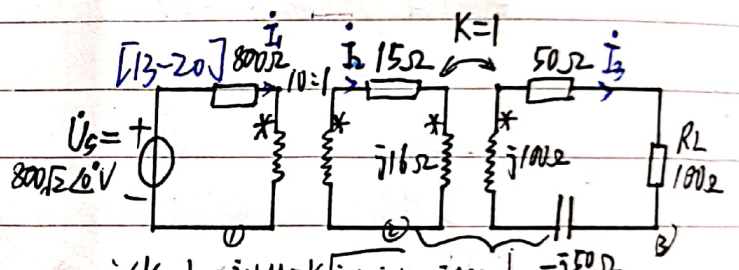 K=1
[13-20] 800Ω İ₁ 10:1 İ₂ 15Ω 50Ω İ₃
* * * *
U̇s= + 800√2∠0°V -
j16Ω j100Ω RL 100Ω
① ② -j50Ω ③